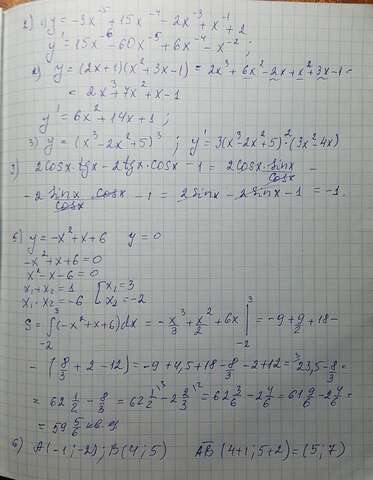 2) 1) y = -3x⁻⁵ + 15x⁻⁴ - 2x⁻³ + x⁻¹ + 2
y' = 15x⁻⁶ - 60x⁻⁵ + 6x⁻⁴ - x⁻² ;
2) y = (2x+1)(x²+3x-1) = 2x³ + 6x² - 2x + x² + 3x - 1 =
= 2x³ + 7x² + x - 1
y' = 6x² + 14x + 1 ;
3) y = (x³ - 2x² + 5)³ ; y' = 3(x³ - 2x² + 5)² · (3x² - 4x)
3) 2cosx · tgx - 2tgx · cosx - 1 = 2cosx · sinx/cosx -
- 2 sinx/cosx · cosx - 1 = 2sinx - 2sinx - 1 = -1.
5) y = -x² + x + 6 y = 0
-x² + x + 6 = 0
x² - x - 6 = 0
x₁ + x₂ = 1 [ x₁ = 3
x₁ · x₂ = -6 x₂ = -2
S = ∫₋₂³ (-x² + x + 6)dx = -x³/3 + x²/2 + 6x |₋₂³ = -9 + 9/2 + 18 -
- (8/3 + 2 - 12) = -9 + 4,5 + 18 - 8/3 - 2 + 12 = 23,5 - 8/3 =
= 62 1/2 - 8/3 = 62 1/2 - 2 2/3 = 62 3/6 - 2 4/6 = 61 9/6 - 2 4/6 =
= 59 5/6 кв.ед
6) A(-1; -2); B(4; 5) AB (4+1; 5+2) = (5; 7)